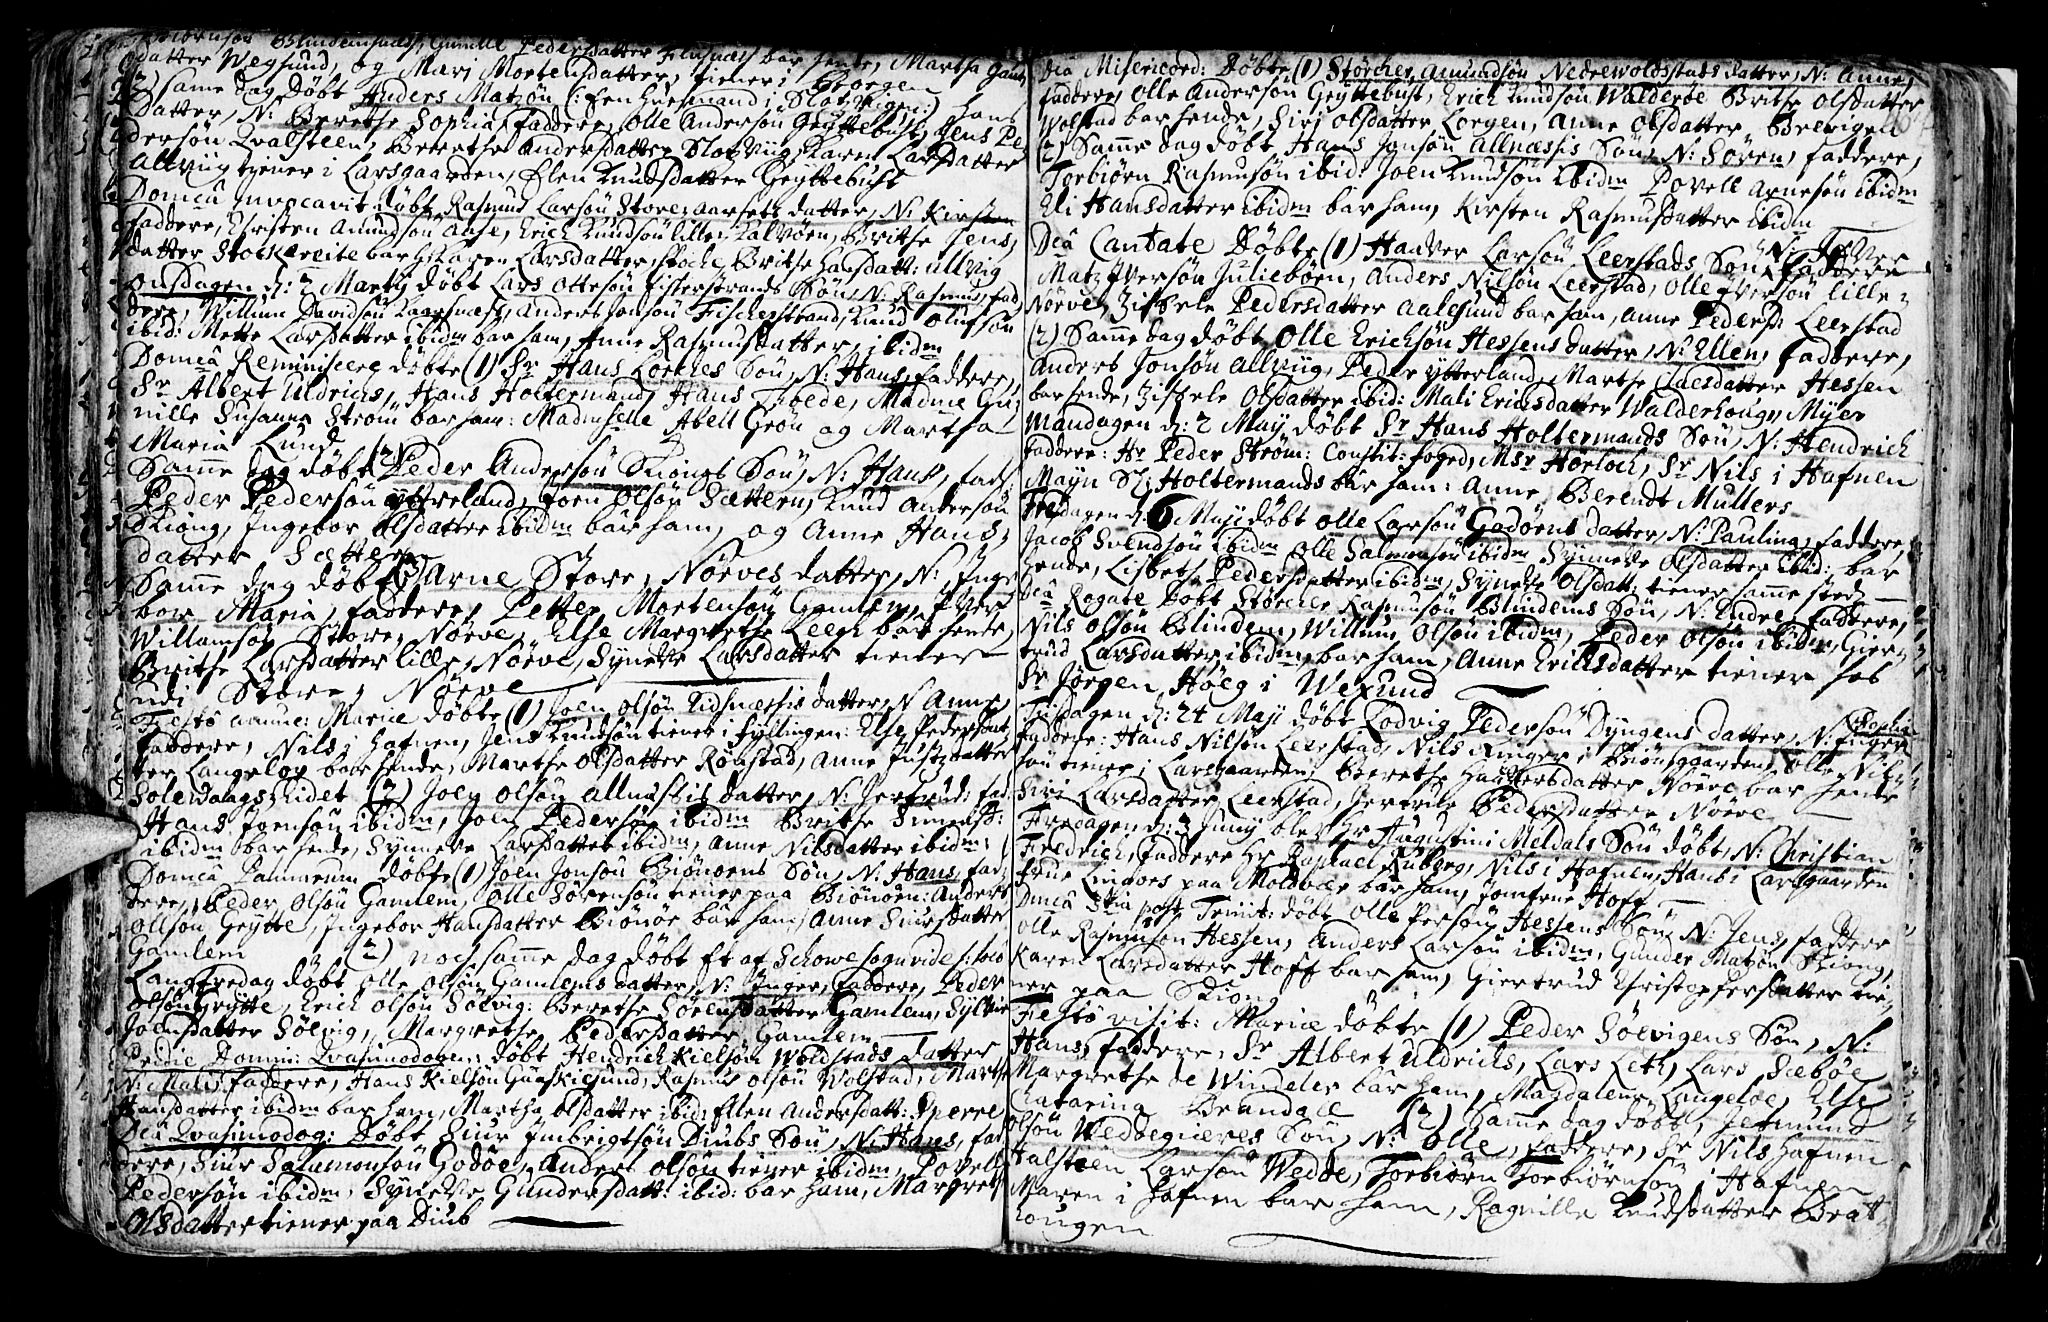 Blindemsnæss, Gunille Pedersdatter Flisnæss bar hende, Martha
datter Wegsund, og Mari Mortensdatter, tiener i Borgen
2) same dag döbt Anders Matzön (: Een Huusmand i Slotzvigen :) hans
datter, N: Berethe Sophia, faddere, Olle Andersön Gryttebust, Jens Pe
dersön Qvalsteen, Berethe Andersdatter Slotzviig, Karen Larsdatter
Allviig tiener i Larsgaarden, Elen Knudsdatter Gryttebust
Domcâ Invocavit döbt Rasmus Larsön Store Aarsets datter, N: Kirsten
faddere, Christen Amundsön Aase, Erich Knudsön lille Kalvöen, Brithe Jens
datter Stockreite bar h: Karen Larsdatter, Brithe Hansdatt: Ullvig
Onsdagen d: 2 Martij döbt Lars Ottesön Fisterstrands Sön, N: Rasmus, fad
dere, Willum Davidsön Kaarsnæss, Anders Jonsön Fischerstrand, Knud Olufsön
ibid: Mette Larsdatter ibidm bar ham, Anne Rasmusdatter, ibidm
Domcâ Reminiscere döbte (1) Sr Hans Lorches Sön, N: Hans, faddere,
Sr Albert Uldrichs, Hans Holtermand, Hans Thode, Madme Gu
nille Susanna Ström bar ham: Madmselle Abell Grön og Martha
Maria Lund
Samme dag döbt Peder Andersön Skiongs Sön, N: Hans, fad:
Peder Pedersön Yttreland, Joen Olsön Sættern, Knud Andersön
Skiong, Ingebor Olsdatter ibidm bar ham, og Anne Hans
datter Sættern
Samme dag döbt Arne Store Nörves datter, N: Inge
bor Maria, faddere, Petter Mortensön Gamlem, Iver
Willamsön Store Nörve, Else Margrethe Leegh bar hende,
Brithe Larsdatter lille Nörve, Synneve Larsdatter tiener
udi Store Nörve
Festo annunc: Mariæ döbte (1) Joen Olsön Eidsnæssis datter, N: Anne,
faddere, Nils i Hafnen, Jens Knudsön tiener i Fyllingen: Else Pedersdat
ter Langeloe bar hende, Marthe Olsdatter Rönstad, Anne Justzdatter
Solevaagseidet (2) Joen Olsön Allnæssis datter, N: Jertrud: fad
Hans Joensön ibidm, Joen Pedersön ibidm Brithe Simensd:
ibidm bar hende, Synneve Larsdatter ibidm, Anne Nilsdatter ibidm:
Domcâ Palmarum döbte (1) Joen Jonsön Biönöens Sön, N: Hans, fad
dere, Peder Olsön Gamlem, Olle Sörensön tiener paa Biönöen: Anders
Ollsön Grytte, Ingebor Hansdatter Biönöe bar ham, Anne Siursdatter
Gamlem (2) noch samme dag döbt Et af Schowe sogn vide s: loco
Langfredag döbt Olle Olsön Gamlems datter, N: Inger, faddere, Peder
Olsön Grytte, Erich Olsön Solvig: Berethe Sörensdatter Gamlem, Sylvie
Joensdatter Sölvig, Margrethe Pedersdatter Gamlem
Pridie Domin: Qvasimodogen: döbt Hendrich Kielsön Wolstads datter
N: Mali, faddere, Hans Kielsön Gaaskiesund, Rasmus Olsön Wolstad, Marthe
Hansdatter ibidm bar ham, Martha Olsdatter ibid: Ellen Andersdatt: Sperre
Dcâ Qvasimodog: Döbt Siur Imbrigtsön Diubs Sön, N: Hans, fad
dere, Siur Salamonsön Godöe, Anders Olsön tiener ibidm, Povell
Pedersön ibidm, Syneve Gundersdatt: ibid: bar ham, Margret
Olsdatter tiener paa Diub
Dcâ Misericord: Döbte (1) Störcher Amundsön Nedrewoldsstads datter, N: Anne,
faddere, Olle Andersön Gryttebust, Erich Knudsön Walderöe Brithe Olsdatter
Wolstad bar hende, Siri Olsdatter Lorgen, Anne Olsdatter Brevigen
(2) Samme dag döbt Hans Jonsön Allnæssis Sön, N: Sören, faddere,
Torbiörn Rasmusön ibid: Joen Knudsön ibidm Povell Arnesön ibidm
Eli Hansdatter ibidm bar ham, Kirsten Rasmusdatter ibidm
Dcâ Cantate Döbte (1) Hadver Larsön Leerstads Sön, N: Iver faddere
Matz Iversön Julieböen, Anders Nilsön Leerstad, Olle Iversön lille
Nörve, Zidsele Pedersdatter Aalesund bar ham, Anne Pedersd: Leerstad
(2) Samme dag döbt Olle Erichsön Hessens datter, N: Ellen, faddere,
Anders Jonsön Allviig, Peder Ytterland, Marthe Claesdatter Hessen
bar hende, Zidsele Olsdatter ibid: Mali Erichsdatter Walderhoug, Myer
Mandagen d: 2 Maij döbt Sr Hans Holtermands Sön, N: Hendrich
faddere: Hr Peder Ström: Constit: foged, Msr Hörloch, Sr Nils i Hafnen
Mayn Sl: Holtermands bar ham: Anne Berendt Mullers
Fredagen d: 6 Maji döbt Olle Larsön Godöens datter, N: Paulina, faddere,
Jacob Svendsön ibidm Olle Salmonsön ibidm Synneve Olsdatter ibid: bar
hende, Lisbeth Pedersdatter ibidm, Syneve Olsdatt: tiener samme sted
Dcâ Rogate Döbt Störcher Rasmusön Blindems Sön, N: Endre, faddere,
Nils Olsön Blindem, Willum Olsön ibidm, Peder Olsön ibidm, Gier
trud Larsdatter ibidm, bar ham, Anne Erichsdatter tiener hos
Sr Jörgen Höeg i Wexund
Tirsdagen d: 24 Maji döbt Lodvig Pedersön Dyngens datter, N: Inger Sophia
faddere: Hans Nilsön Leerstad, Nils Ringer i Biönsgaarden, Olle Nils
sön tiener i Larsgaarden, Berethe Hadversdatter Nörve bar hende
Siri Larsdatter Leerstad, Gertrue Pedersdatter Nörve
Fredagen d: 3 Junij blev Hr Augustini Meldals Sön döbt, N: Christian
Fredrich, faddere Hr Raphael Ruberg, Nils i Hafnen, Hans i Larsgaarden
Frue Lindoes paa Moldvær bar ham, Jomfrue Hoff
Dmcâ post Trinit: döbt Olle Persön Hessens Sön, N: Jens, faddere
Olle Rasmusön Hessen, Anders Larsön ibidm, Gunder Matzön Skiong,
Karen Larsdatter Hoff bar ham, Giertrud Christophersdatter tie
ner paa Skiong
Festo visit: Mariæ döbte (1) Peder Sölvigens Sön, N:
Hans, faddere, Sr Albert Uldrichs, Lars Leth, Lars Sæböe
Margrethe de Windeler bar ham, Magdalena Langeloe, Else
Catarina Brandall (2) Samme dag döbt, Jetmund
Olsön Wedbegiæres Sön, N: Olle, faddere, Sr Nils Hafnen
Halsteen Larsön Wedöe, Torbiörn Torbiörnsön i Hafnen
Maren i Hafnen bar ham, Ragnille Knudsdatter Brat
hougen